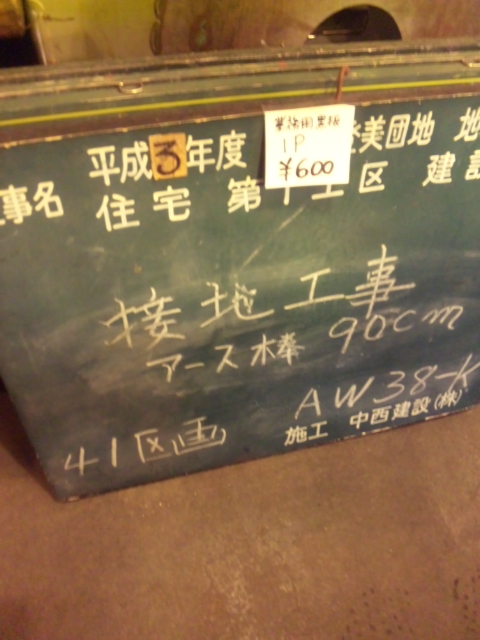 事名 平成3年度 美団地 地
住宅 第十工区 建設
業務用黒板
1P
¥600
接地工事
アース棒 90cm
AW38-K
41区画
施工 中西建設(株)